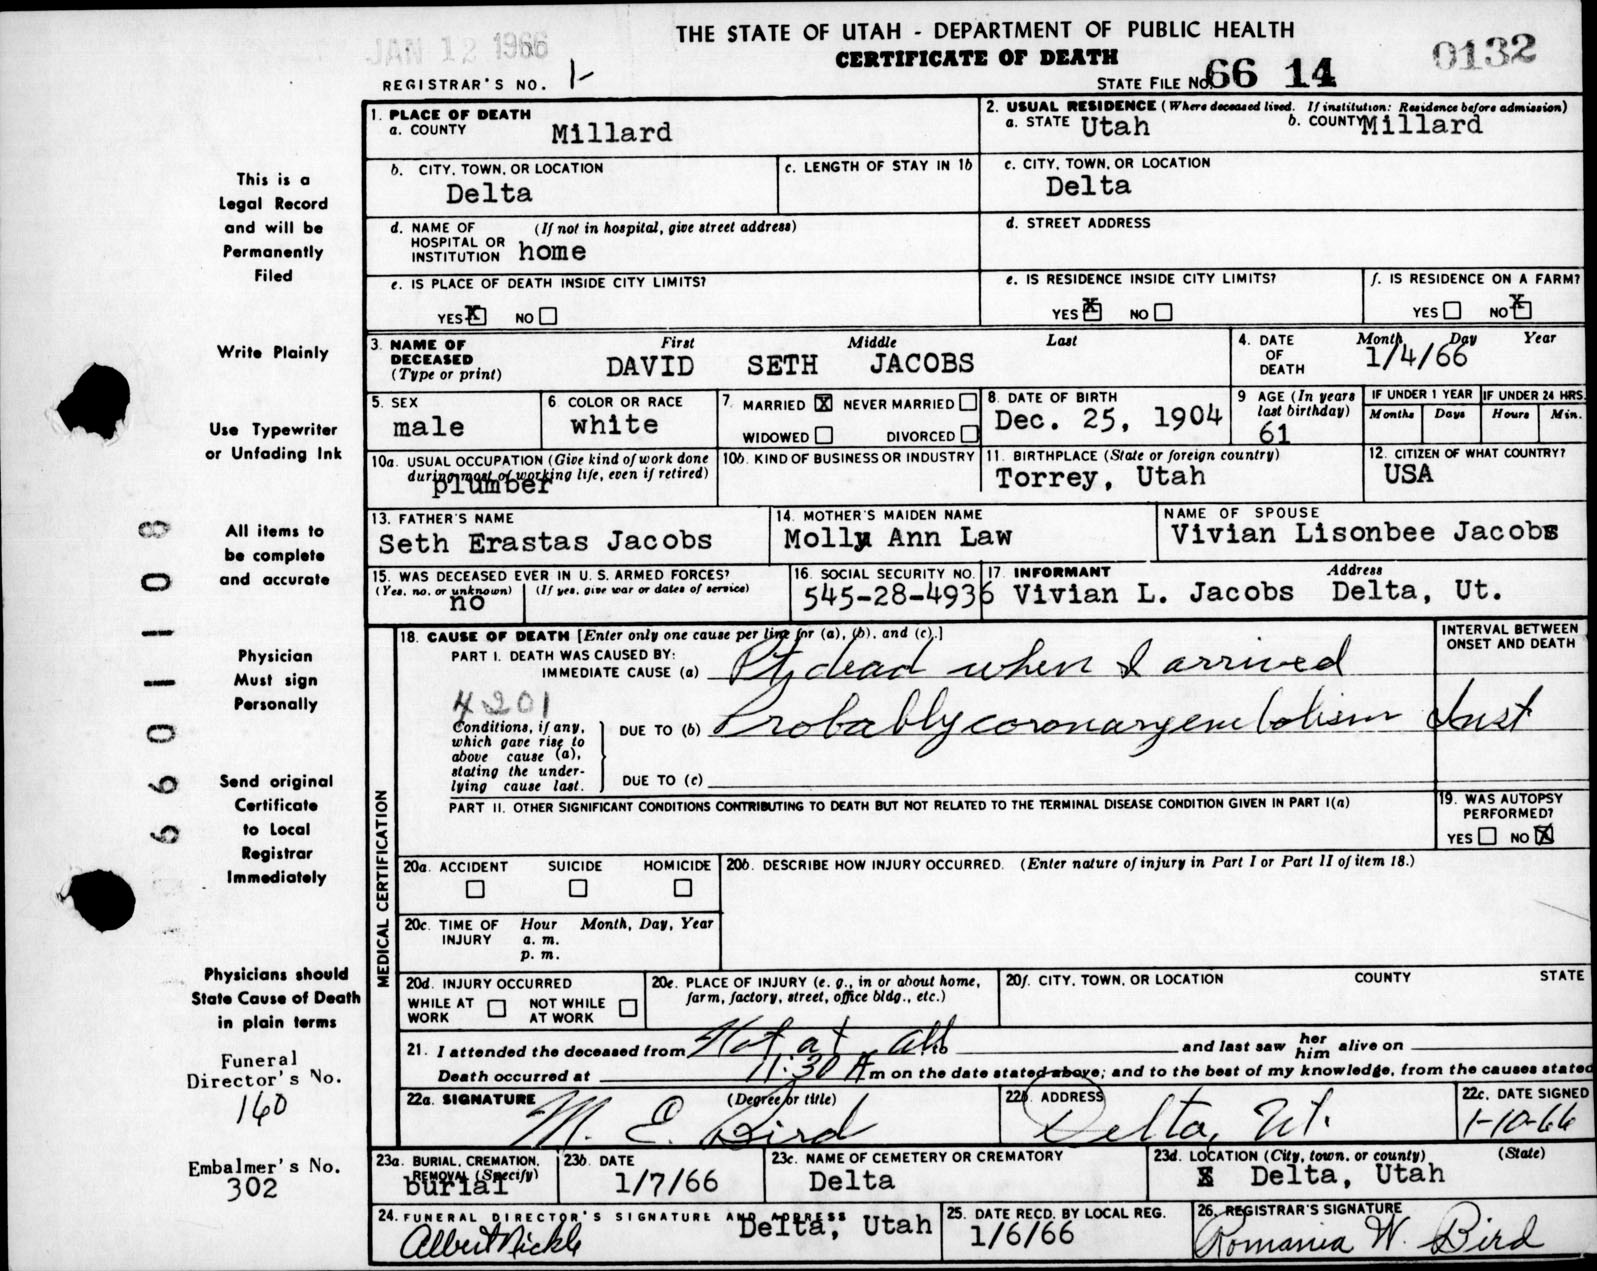 JAN 12 1966
THE STATE OF UTAH - DEPARTMENT OF PUBLIC HEALTH
CERTIFICATE OF DEATH
0132
REGISTRAR'S NO. 1-
STATE FILE NO. 66 14
1. PLACE OF DEATH
a. COUNTY Millard
2. USUAL RESIDENCE (Where deceased lived. If institution: Residence before admission)
a. STATE Utah b. COUNTY Millard
b. CITY, TOWN, OR LOCATION
Delta
c. LENGTH OF STAY IN 1b
c. CITY, TOWN, OR LOCATION
Delta
d. NAME OF HOSPITAL OR INSTITUTION (If not in hospital, give street address)
home
d. STREET ADDRESS
e. IS PLACE OF DEATH INSIDE CITY LIMITS?
YES X NO
e. IS RESIDENCE INSIDE CITY LIMITS?
YES X NO
f. IS RESIDENCE ON A FARM?
YES NO X
3. NAME OF DECEASED (Type or print)
First Middle Last
DAVID SETH JACOBS
4. DATE OF DEATH
Month Day Year
1/4/66
5. SEX
male
6 COLOR OR RACE
white
7. MARRIED X NEVER MARRIED
WIDOWED DIVORCED
8. DATE OF BIRTH
Dec. 25, 1904
9 AGE (In years last birthday)
61
IF UNDER 1 YEAR
Months Days
IF UNDER 24 HRS.
Hours Min.
10a. USUAL OCCUPATION (Give kind of work done during most of working life, even if retired)
plumber
10b. KIND OF BUSINESS OR INDUSTRY
11. BIRTHPLACE (State or foreign country)
Torrey, Utah
12. CITIZEN OF WHAT COUNTRY?
USA
13. FATHER'S NAME
Seth Erastas Jacobs
14. MOTHER'S MAIDEN NAME
Molly Ann Law
NAME OF SPOUSE
Vivian Lisonbee Jacobs
15. WAS DECEASED EVER IN U. S. ARMED FORCES?
(Yes, no, or unknown) (If yes, give war or dates of service)
no
16. SOCIAL SECURITY NO.
545-28-4936
17. INFORMANT Address
Vivian L. Jacobs Delta, Ut.
MEDICAL CERTIFICATION
18. CAUSE OF DEATH [Enter only one cause per line for (a), (b), and (c).]
INTERVAL BETWEEN ONSET AND DEATH
PART I. DEATH WAS CAUSED BY:
IMMEDIATE CAUSE (a) Pt dead when I arrived
4201
Conditions, if any, which gave rise to above cause (a), stating the underlying cause last.
DUE TO (b) Probably coronary embolism Inst
DUE TO (c)
PART II. OTHER SIGNIFICANT CONDITIONS CONTRIBUTING TO DEATH BUT NOT RELATED TO THE TERMINAL DISEASE CONDITION GIVEN IN PART I(a)
19. WAS AUTOPSY PERFORMED?
YES NO X
20a. ACCIDENT SUICIDE HOMICIDE
20b. DESCRIBE HOW INJURY OCCURRED. (Enter nature of injury in Part I or Part II of item 18.)
20c. TIME OF INJURY Hour Month, Day, Year
a. m.
p. m.
20d. INJURY OCCURRED
WHILE AT WORK NOT WHILE AT WORK
20e. PLACE OF INJURY (e. g., in or about home, farm, factory, street, office bldg., etc.)
20f. CITY, TOWN, OR LOCATION COUNTY STATE
21. I attended the deceased from Not at all to and last saw her him alive on
Death occurred at 11:30 A m on the date stated above; and to the best of my knowledge, from the causes stated
22a. SIGNATURE (Degree or title)
M. E. Bird
22b. ADDRESS
Delta, Ut.
22c. DATE SIGNED
1-10-66
23a. BURIAL, CREMATION, REMOVAL (Specify)
burial
23b. DATE
1/7/66
23c. NAME OF CEMETERY OR CREMATORY
Delta
23d. LOCATION (City, town, or county) (State)
Delta, Utah
24. FUNERAL DIRECTOR'S SIGNATURE AND ADDRESS
Albert Nickle Delta, Utah
25. DATE RECD. BY LOCAL REG.
1/6/66
26. REGISTRAR'S SIGNATURE
Romania W. Bird
This is a
Legal Record
and will be
Permanently
Filed
Write Plainly
Use Typewriter
or Unfading Ink
All items to
be complete
and accurate
Physician
Must sign
Personally
Send original
Certificate
to Local
Registrar
Immediately
Physicians should
State Cause of Death
in plain terms
Funeral
Director's No.
160
Embalmer's No.
302
66011 08